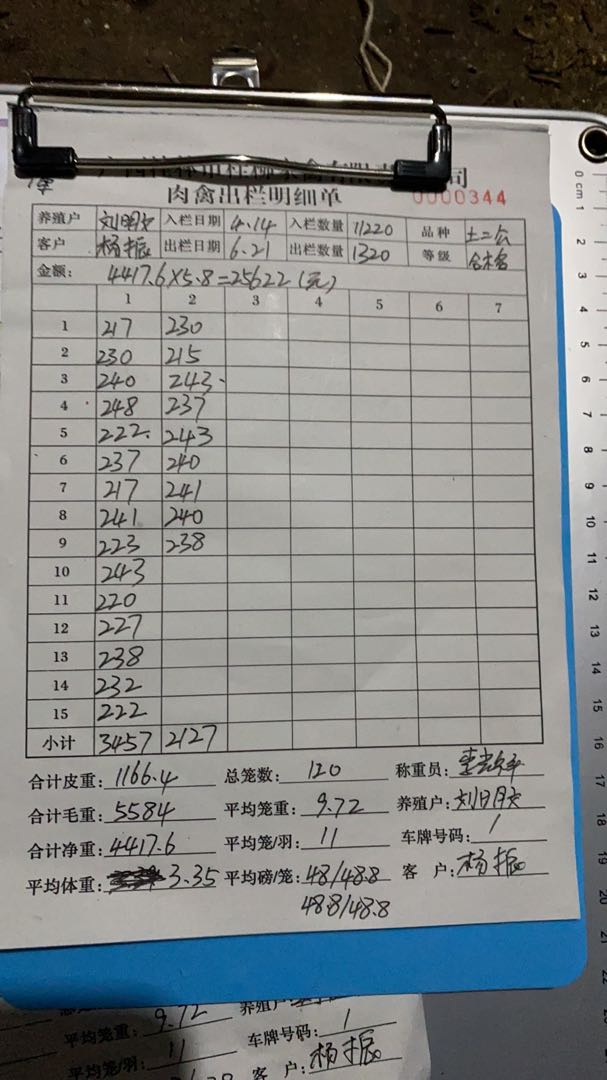 肉禽出栏明细单
0000344
养殖户 入栏日期 4.14 入栏数量 11220 品种 土二公
客户 杨振 出栏日期 6.21 出栏数量 1320 等级 合格
金额: 4417.6×5.8=25622(元)
1 2 3 4 5 6 7
1 217 230
2 230 215
3 240 243
4 248 237
5 222 243
6 237 240
7 217 241
8 241 240
9 223 238
10 243
11 220
12 227
13 238
14 232
15 222
小计 3457 2127
合计皮重: 1166.4 总笼数: 120 称重员:
合计毛重: 5584 平均笼重: 9.72 养殖户:
合计净重: 4417.6 平均笼/羽: 11 车牌号码: /
平均体重: 3.35 平均磅/笼: 48/48.8 客户: 杨振
48.8/48.8
平均笼重: 9.72 养殖户:
平均笼/羽: 11 车牌号码: /
客户: 杨振
0 cm 1 2 3 4 5 6 7 8 9 10 11 12 13 14 15 16 17 18 19 20 21 22